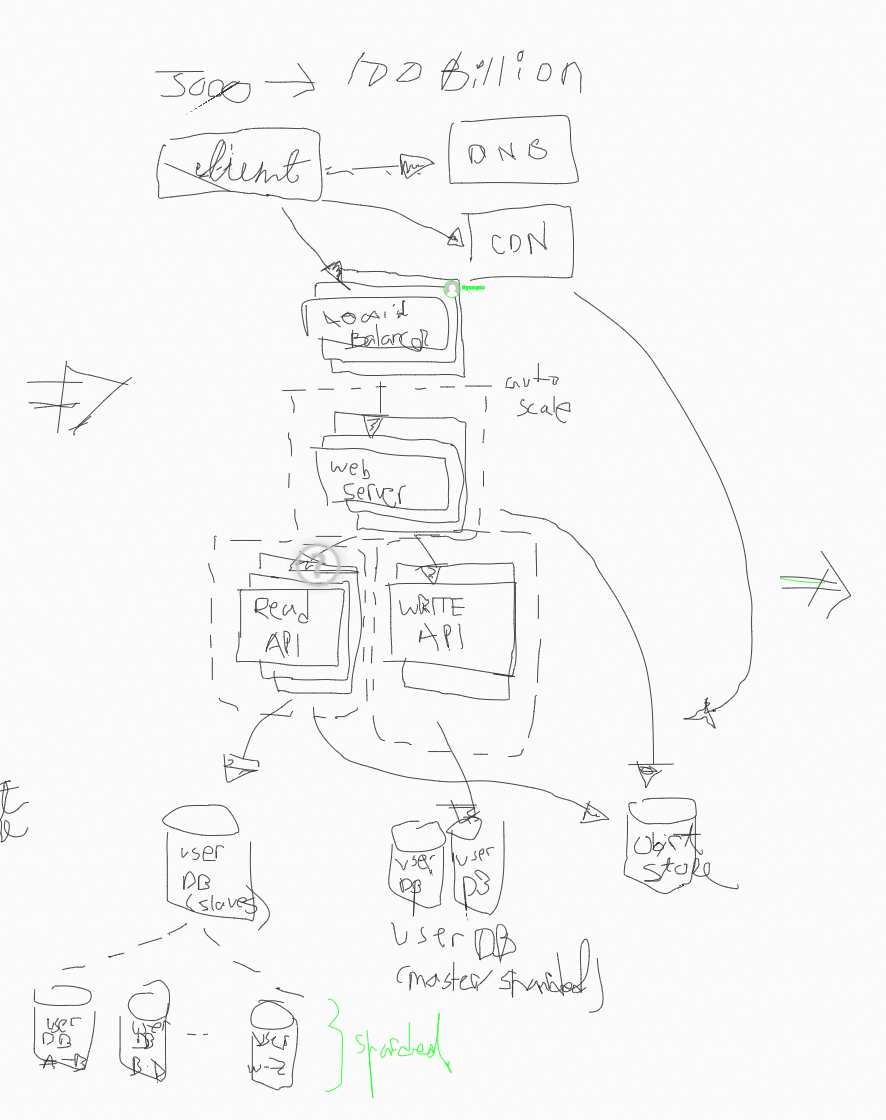 5000 → 100 Billion
client
DNS
CDN
Load
Balancer
auto
scale
web
server
Read
API
WRITE
API
user
DB
(slaves)
user
DB
user
DB
user DB
(master/sharded)
Object
store
user
DB
A-B
user
DB
B-D
--
user
W-Z
sharded